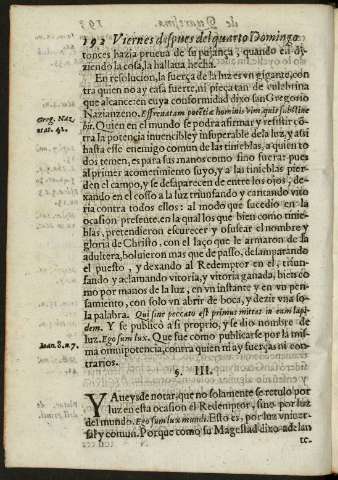 192 Viernes despues del quarto Domingo
tonces hazia prueua de su pujança, quando en di-
ziendo la cosa, la hallaua hecha.
En resolucion, la fuerça de la luz es vn gigante, con
tra quien no ay casa fuerte, ni pieça tan de culebrina
que alcance: en cuya conformidad dixo san Gregorio
Nazianzeno.
Greg. Naz.
orat. 42.
Quien en el mundo se podra afirmar y resistir cō
tra la potencia inuencible y insuperable de la luz, y assi
hasta esse enemigo comun de las tinieblas, a quien to
dos temen, es para sus manos como sino fuera: pues
al primer acometimiento suyo, y a las tinieblas pier-
den el campo, y se desaparecen de entre los ojos, de-
xando en el cosso a la luz triunfando y cantando vito
ria contra todos ellos: al modo que sucedio en la
ocasion presente, en la qual los que bien como tinie-
blas, pretendieron escurecer y ofuscar el nombre y
gloria de Christo, con el laço que le armaron de la
adultera, boluieron mas que de passo, desamparando
el puesto, y dexando al Redemptor en el, triun-
fando y aclamando vitoria, y vitoria ganada, bien co
mo por manos de la luz, en vn instante y en vn pen-
samiento, con solo vn abrir de boca, y dezir vna so-
la palabra. Qui sine peccato est primus mittat in eam lapi-
dem. Y se publicò a si proprio, y se dio nombre de
luz. Ego sum lux. Que fue como publicarse por la mis-
Ioan. 8. n. 7.
ma omnipotencia, contra quien ni ay fuerças ni con
trarios.
§. III.
Y Aueys de notar, que no solamente se retulo por
luz en esta ocasion el Redemptor, sino por luz
del mundo. Ego sum lux mundi. Esto es, por luz vniuer-
sal y comun. Porque como su Magestad dixo adelan
te.